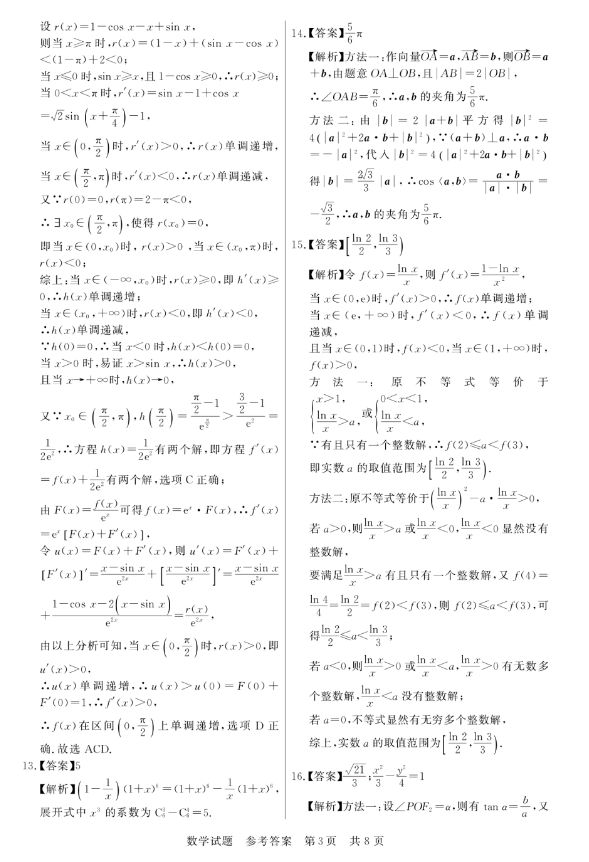 设 r(x)=1−cos x−x+sin x,
则当 x⩾π 时,r(x)=(1−x)+(sin x−cos x)
<(1−π)+2<0;
当 x⩽0 时,sin x⩾x,且 1−cos x⩾0,∴r(x)⩾0;
当 0<x<π 时,r′(x)=sin x−1+cos x
=√2 sin (x+π/4)−1,
当 x∈(0,π/2)时,r′(x)>0,∴r(x)单调递增,
当 x∈(π/2,π)时,r′(x)<0,∴r(x)单调递减,
又∵r(0)=0,r(π)=2−π<0,
∴∃x₀∈(π/2,π),使得 r(x₀)=0,
即当 x∈(0,x₀)时, r(x)>0 ,当 x∈(x₀,π)时,
r(x)<0;
综上:当 x∈(−∞,x₀)时,r(x)⩾0,即 h′(x)⩾
0,∴h(x)单调递增;
当 x∈(x₀,+∞)时,r(x)<0,即 h′(x)<0,
∴h(x)单调递减,
∵h(0)=0,∴当 x<0 时,h(x)<h(0)=0,
当 x>0 时,易证 x>sin x,∴h(x)>0,
且当 x→+∞时,h(x)→0,
又∵x₀∈(π/2,π),h(π/2)=(π/2−1)/e^(π/2)>(3/2−1)/e²=
1/2e²,∴方程 h(x)=1/2e²有两个解,即方程 f′(x)
=f(x)+1/2e²有两个解,选项 C 正确;
由 F(x)=f(x)/eˣ可得 f(x)=eˣ·F(x),∴f′(x)
=eˣ[F(x)+F′(x)],
令 u(x)=F(x)+F′(x),则 u′(x)=F′(x)+
[F′(x)]′=(x−sin x)/e²ˣ+[(x−sin x)/e²ˣ]′=(x−sin x)/e²ˣ
+(1−cos x−2(x−sin x))/e²ˣ=r(x)/e²ˣ,
由以上分析可知,当 x∈(0,π/2)时,r(x)>0,即
u′(x)>0,
∴u(x)单调递增,∴u(x)>u(0)=F(0)+
F′(0)=1,∴f′(x)>0,
∴f(x)在区间(0,π/2)上单调递增,选项 D 正
确.故选 ACD.
13.【答案】5
【解析】(1−1/x)(1+x)⁶=(1+x)⁶−1/x(1+x)⁶,
展开式中 x³ 的系数为 C₆³−C₆⁴=5.
14.【答案】5/6π
【解析】方法一:作向量OA→=a,AB→=b,则OB→=a
+b,由题意 OA⊥OB,且|AB|=2|OB|,
∴∠OAB=π/6,∴a,b 的夹角为5/6π.
方法二:由 |b|=2|a+b|平方得 |b|²=
4(|a|²+2a·b+|b|²),∵(a+b)⊥a,∴a·b
=−|a|²,代入|b|²=4(|a|²+2a·b+|b|²)
得|b|=2√3/3|a|,∴cos⟨a,b⟩=a·b/|a|·|b|=
−√3/2,∴a,b 的夹角为5/6π.
15.【答案】[ln 2/2,ln 3/3)
【解析】令 f(x)=ln x/x,则 f′(x)=(1−ln x)/x²,
当 x∈(0,e)时,f′(x)>0,∴f(x)单调递增;
当 x∈(e,+∞)时,f′(x)<0,∴f(x)单调
递减,
且当 x∈(0,1)时,f(x)<0,当 x∈(1,+∞)时,
f(x)>0,
方法一:原不等式等价于
{x>1, ln x/x>a,或{0<x<1, ln x/x<a,
∵有且只有一个整数解,∴f(2)⩽a<f(3),
即实数 a 的取值范围为[ln 2/2,ln 3/3).
方法二:原不等式等价于(ln x/x)²−a·ln x/x>0,
若 a>0,则ln x/x>a 或ln x/x<0,ln x/x<0 显然没有
整数解,
要满足ln x/x>a 有且只有一个整数解,又 f(4)=
ln 4/4=ln 2/2=f(2)<f(3),则 f(2)⩽a<f(3),可
得ln 2/2⩽a<ln 3/3;
若 a<0,则ln x/x>0 或ln x/x<a,ln x/x>0 有无数多
个整数解,ln x/x<a 没有整数解;
若 a=0,不等式显然有无穷多个整数解,
综上,实数 a 的取值范围为[ln 2/2,ln 3/3).
16.【答案】√21/3;x²/3−y²/4=1
【解析】方法一:设∠POF₂=α,则有 tan α=b/a,又
数学试题 参考答案 第3页 共8页